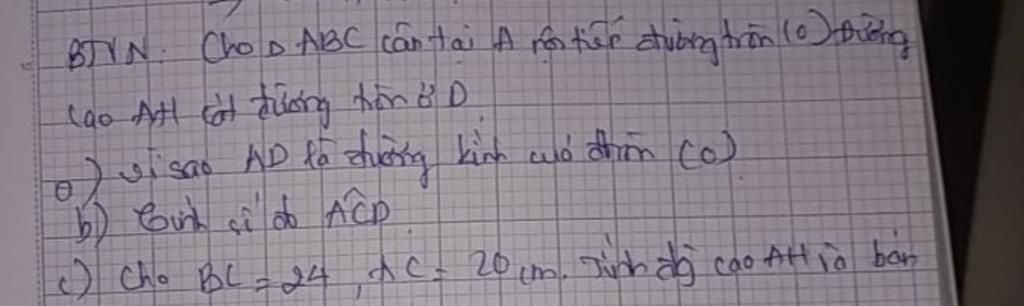 BTVN. Cho Δ ABC cân tại A nội tiếp đường tròn (O) đường
cao AH cắt đường tròn ở D
a) Vì sao AD là đường kính của đtròn (O)
b) số đo ACD
c) Cho BC = 24, AC = 20 cm. Tính độ cao AH và bán